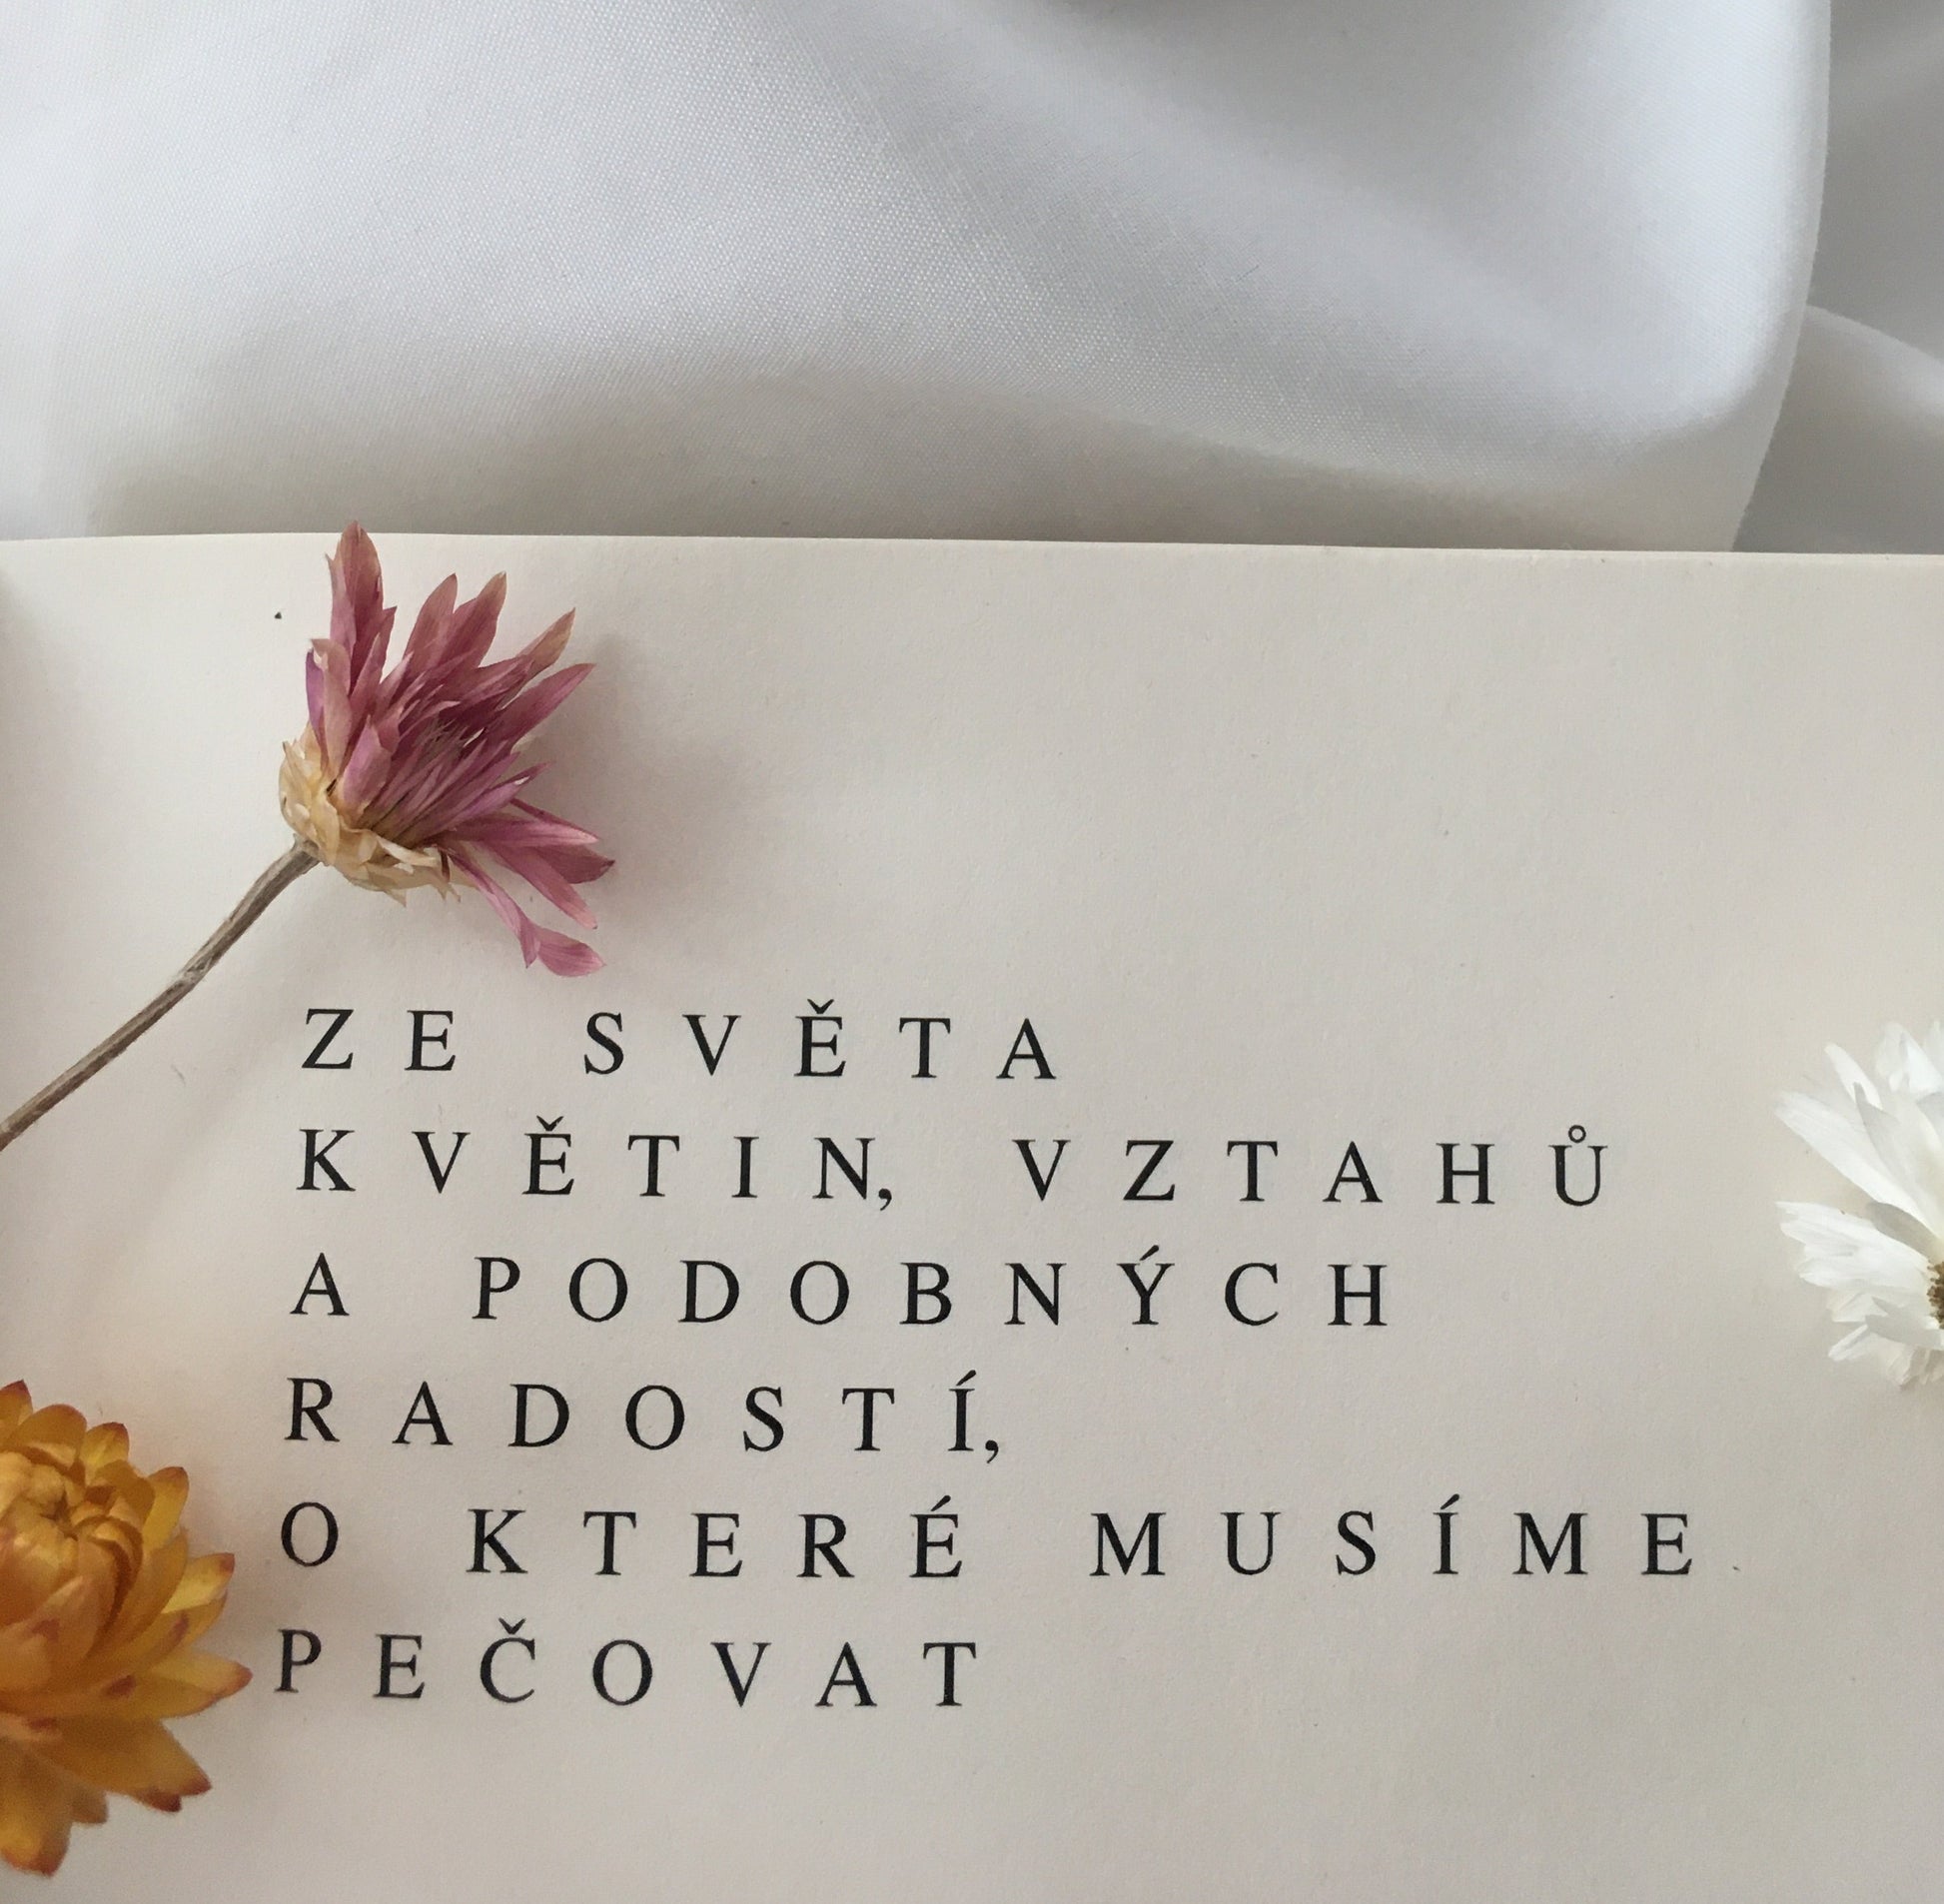 ZE SVĚTA
KVĚTIN, VZTAHŮ
A PODOBNÝCH
RADOSTÍ,
O KTERÉ MUSÍME
PEČOVAT